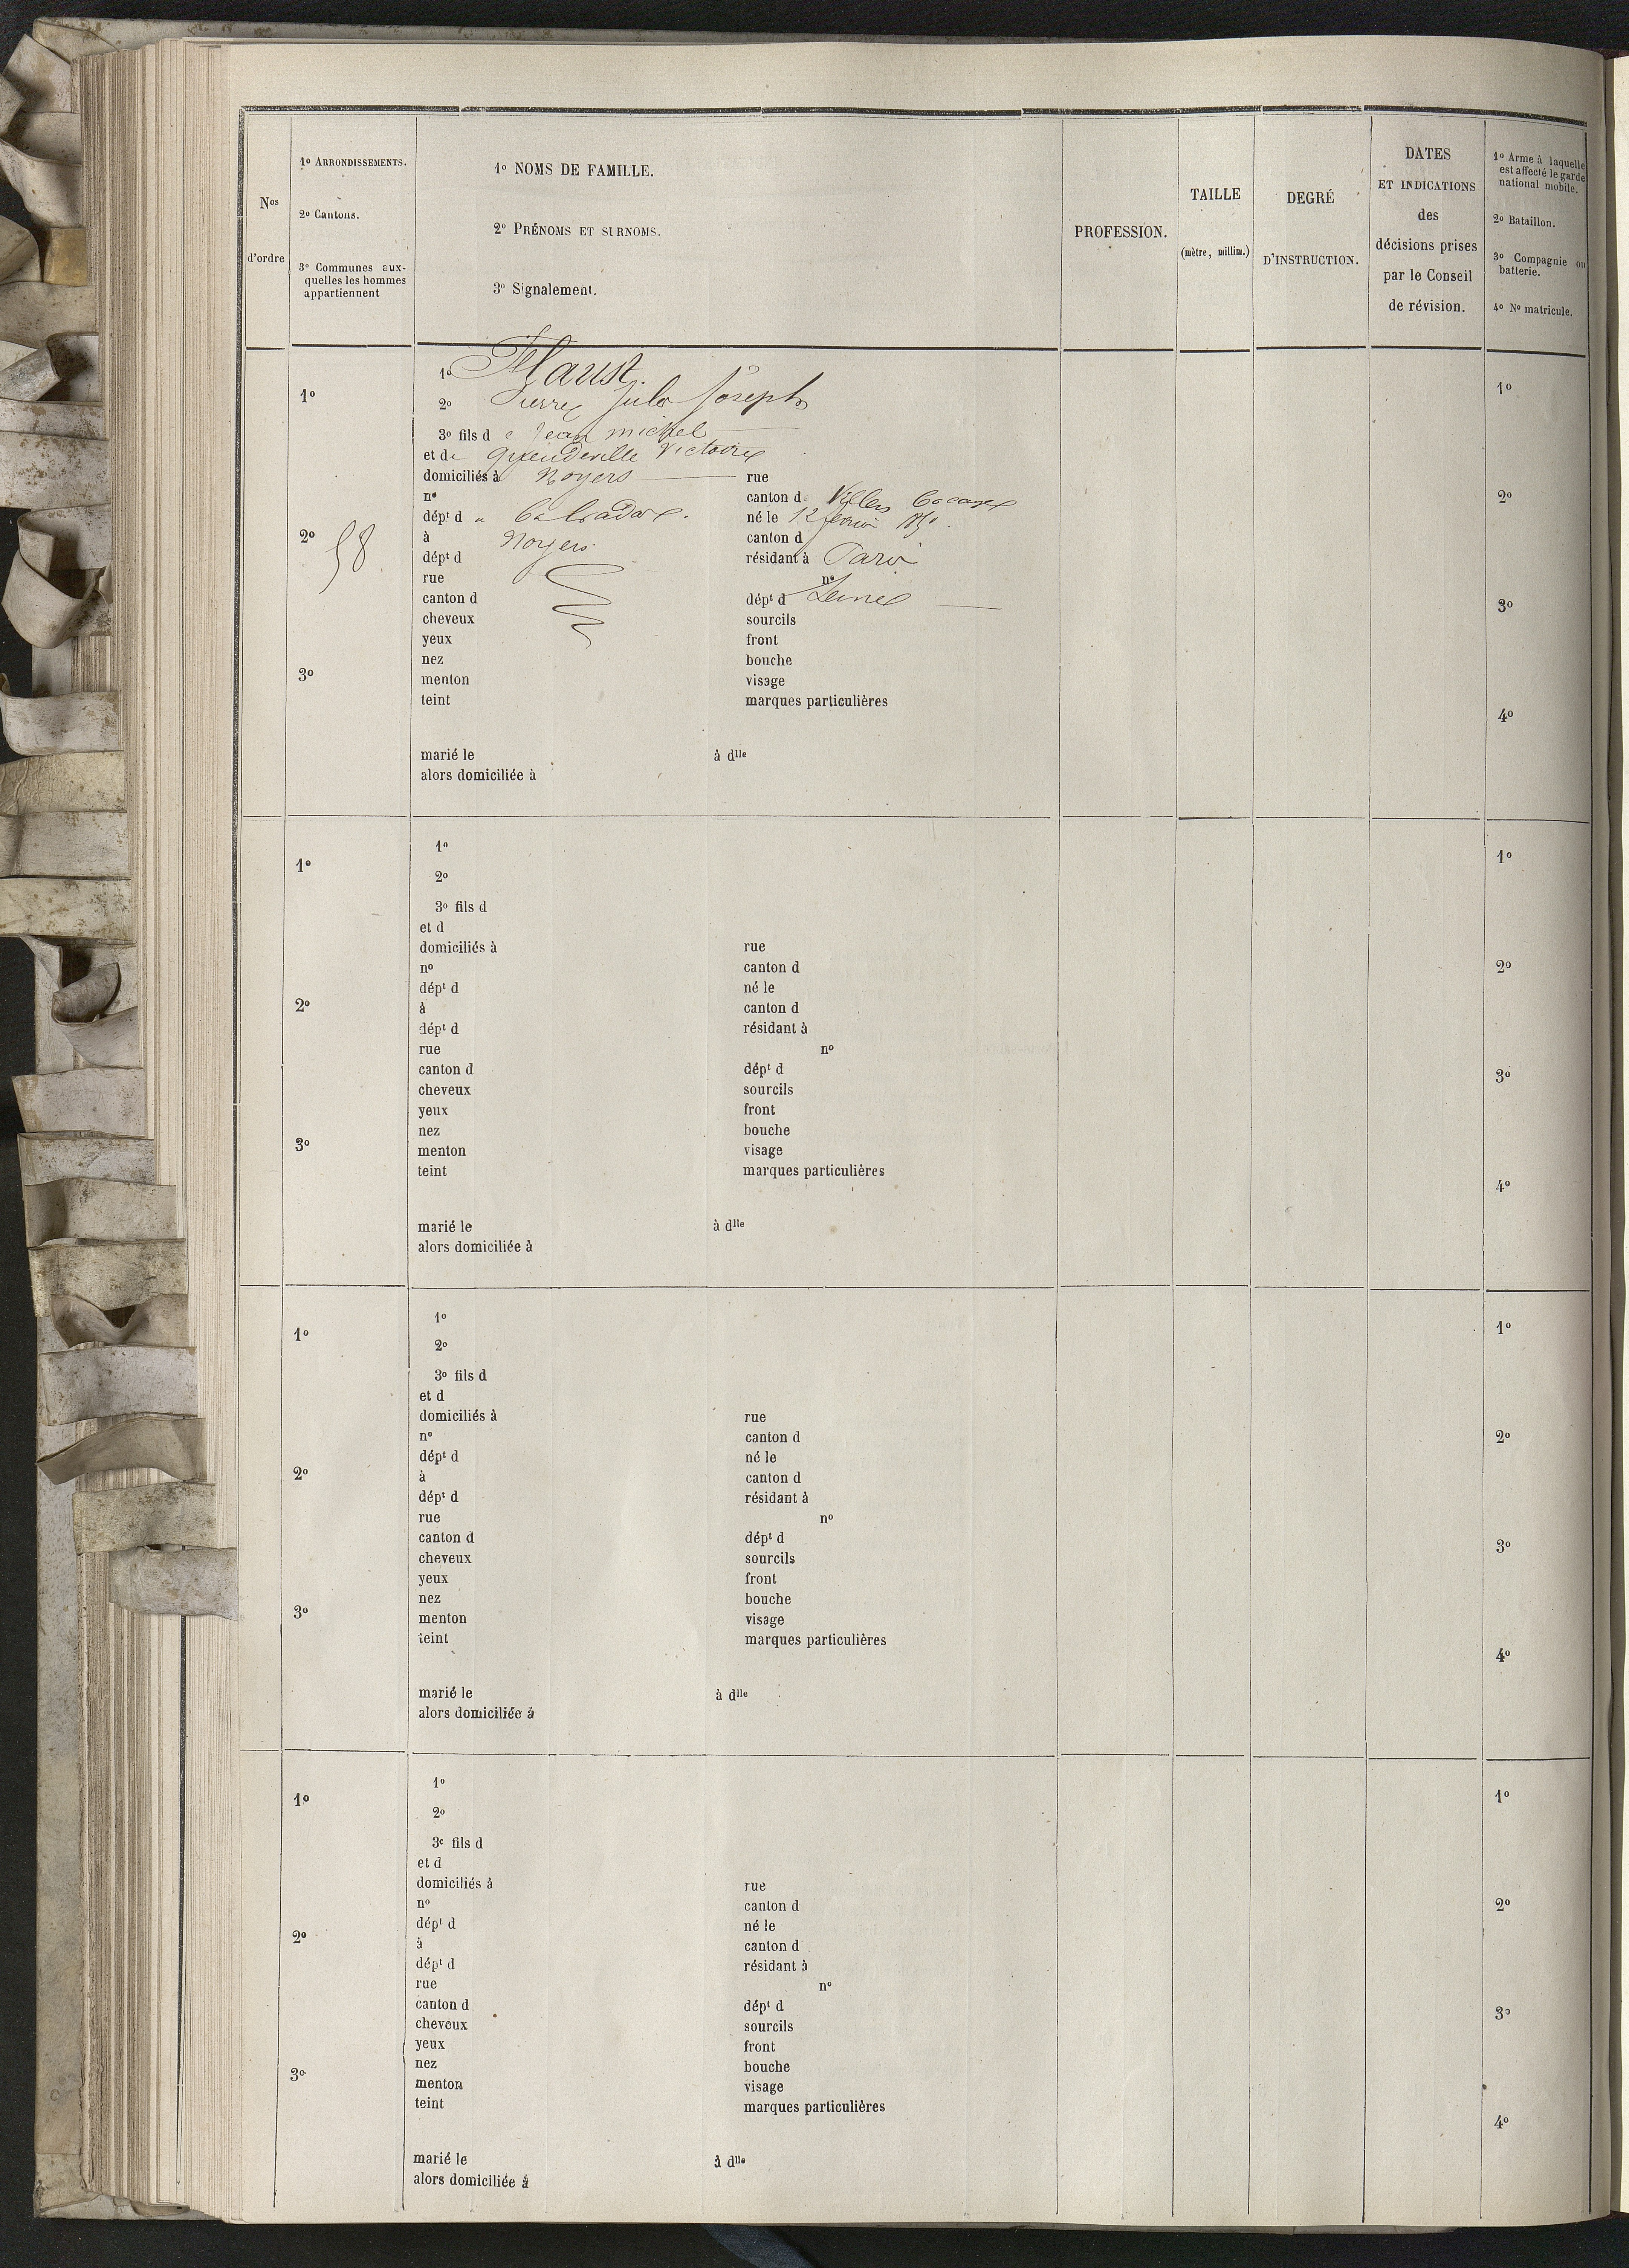 Nos d'ordre
1o ARRONDISSEMENTS.
2o Cantons.
3o Communes aux-
quelles les hommes
appartiennent
1o NOMS DE FAMILLE.
2o PRÉNOMS ET SURNOMS.
3o Signalement.
PROFESSION.
TAILLE
(mètre, millim.)
DEGRÉ
D'INSTRUCTION.
DATES
ET INDICATIONS
des
décisions prises
par le Conseil
de révision.
1o Arme à laquelle
est affecté le garde
national mobile.
2o Bataillon.
3o Compagnie ou
batterie.
4o No matricule.
1o
2o
58.
3o
1o Flaust.
2o Pierre Jules Joseph
3o fils de Jean michel
et de Queudeville Victoire
domiciliés à Noyers rue
no canton de Villers Bocage
dépt d u Calvados. né le 12 février 1850.
à Noyers canton d
dépt d résidant à Paris
rue no
canton d dépt d Seine
cheveux sourcils
yeux front
nez bouche
menton visage
teint marques particulières
marié le à dlle
alors domiciliée à
1o
2o
3o
4o
1o
2o
3o
1o
2o
3o fils d
et d
domiciliés à rue
no canton d
dépt d né le
à canton d
dépt d résidant à
rue no
canton d dépt d
cheveux sourcils
yeux front
nez bouche
menton visage
teint marques particulières
marié le à dlle
alors domiciliée à
1o
2o
3o
4o
1o
2o
3o
1o
2o
3o fils d
et d
domiciliés à rue
no canton d
dépt d né le
à canton d
dépt d résidant à
rue no
canton d dépt d
cheveux sourcils
yeux front
nez bouche
menton visage
teint marques particulières
marié le à dlle
alors domiciliée à
1o
2o
3o
4o
1o
2o
3o
1o
2o
3o fils d
et d
domiciliés à rue
no canton d
dépt d né le
à canton d
dépt d résidant à
rue no
canton d dépt d
cheveux sourcils
yeux front
nez bouche
menton visage
teint marques particulières
marié le à dlle
alors domiciliée à
1o
2o
3o
4o